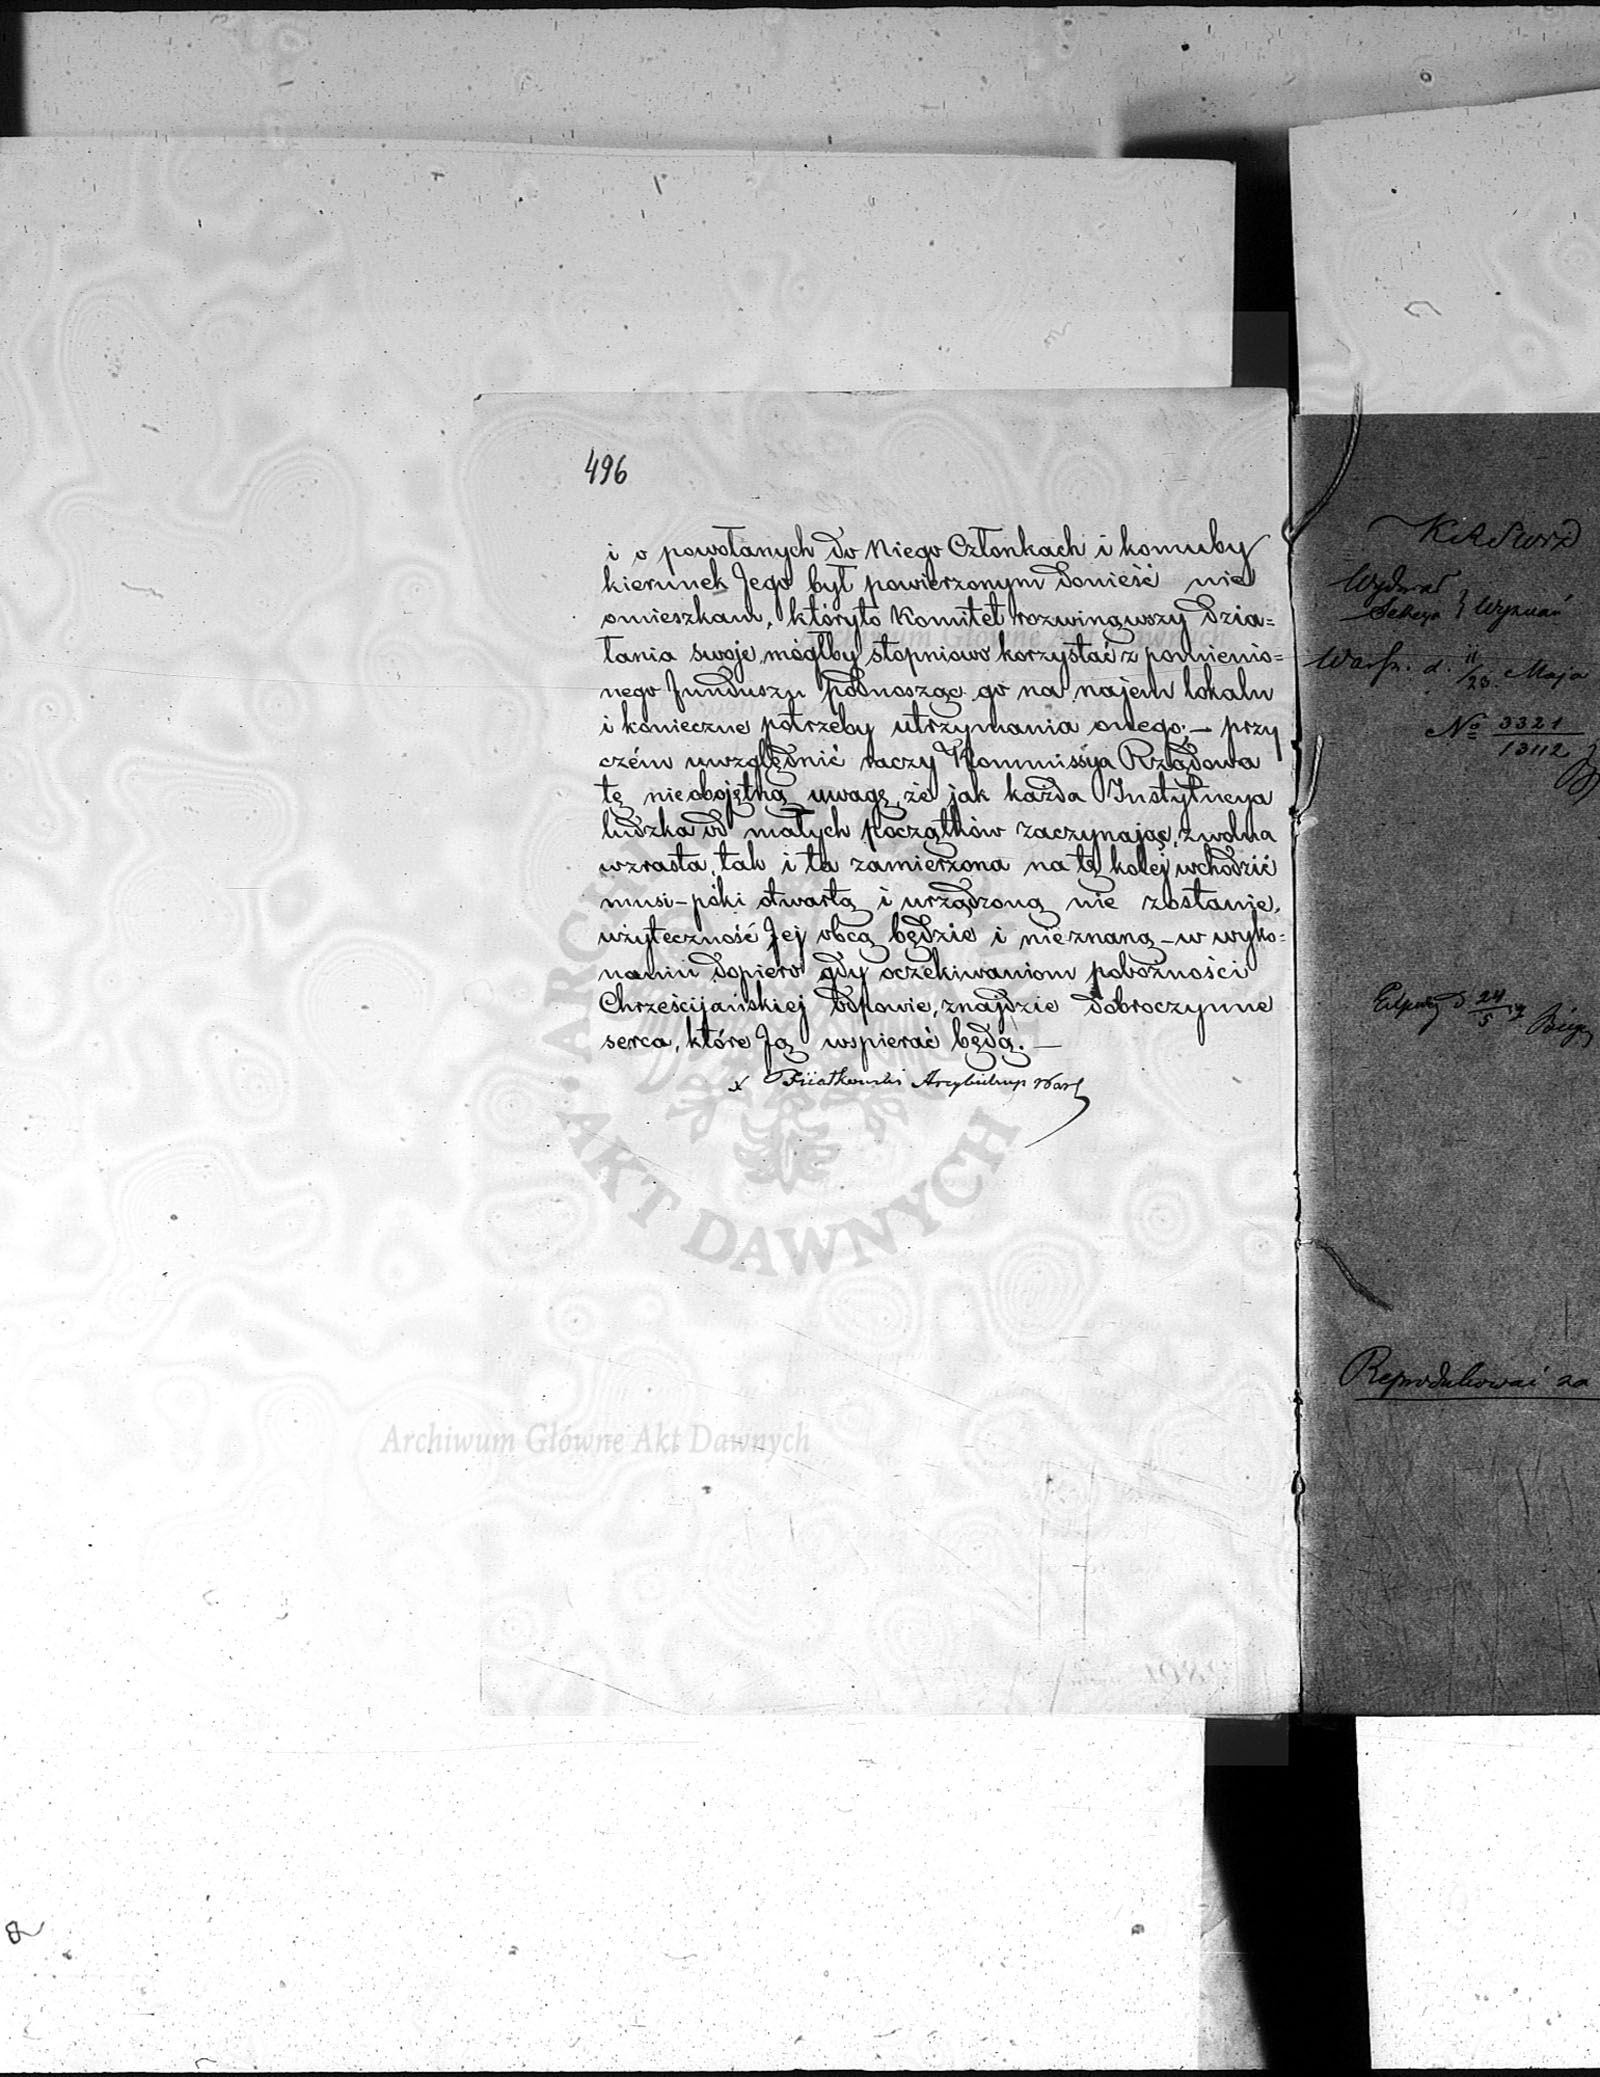 496
i o powołanych do Niego Członkach i komuby
kierunek Jego był powierzonym donieść nie
omieszkam, któryto Komitet rozwinąwszy dzia=
łania swoje, mógłby stopniowo korzystać z pomienio=
nego funduszu podnosząc go na najem lokalu
i konieczne potrzeby utrzymania onego; — przy
czém uwzględnić raczy Kommissya Rządowa
tę nieobojętną uwagę, że jak każda Instytucya
ludzka od małych początków zaczynając, zwolna
wzrasta, tak i ta zamierzona na tę kolej wchodzić
musi – póki otwartą i urządzoną nie zostanie,
użyteczność Jej obcą będzie i nieznaną – w wyko=
naniu dopiero gdy oczekiwaniom pobożności
Chrześcijańskiej odpowie, znajdzie dobroczynne
serca, które Ją wspierać będą. —
x Fijałkowski Arcybiskup War
Wydział
Sekcya } Wyznań
Warsz. d. 11/23 Maja
No 3321/13112
24/5
Reprodukować za
Archiwum Główne Akt Dawnych
Archiwum Główne Akt Dawnych
ARCHIWUM
AKT DAWNYCH